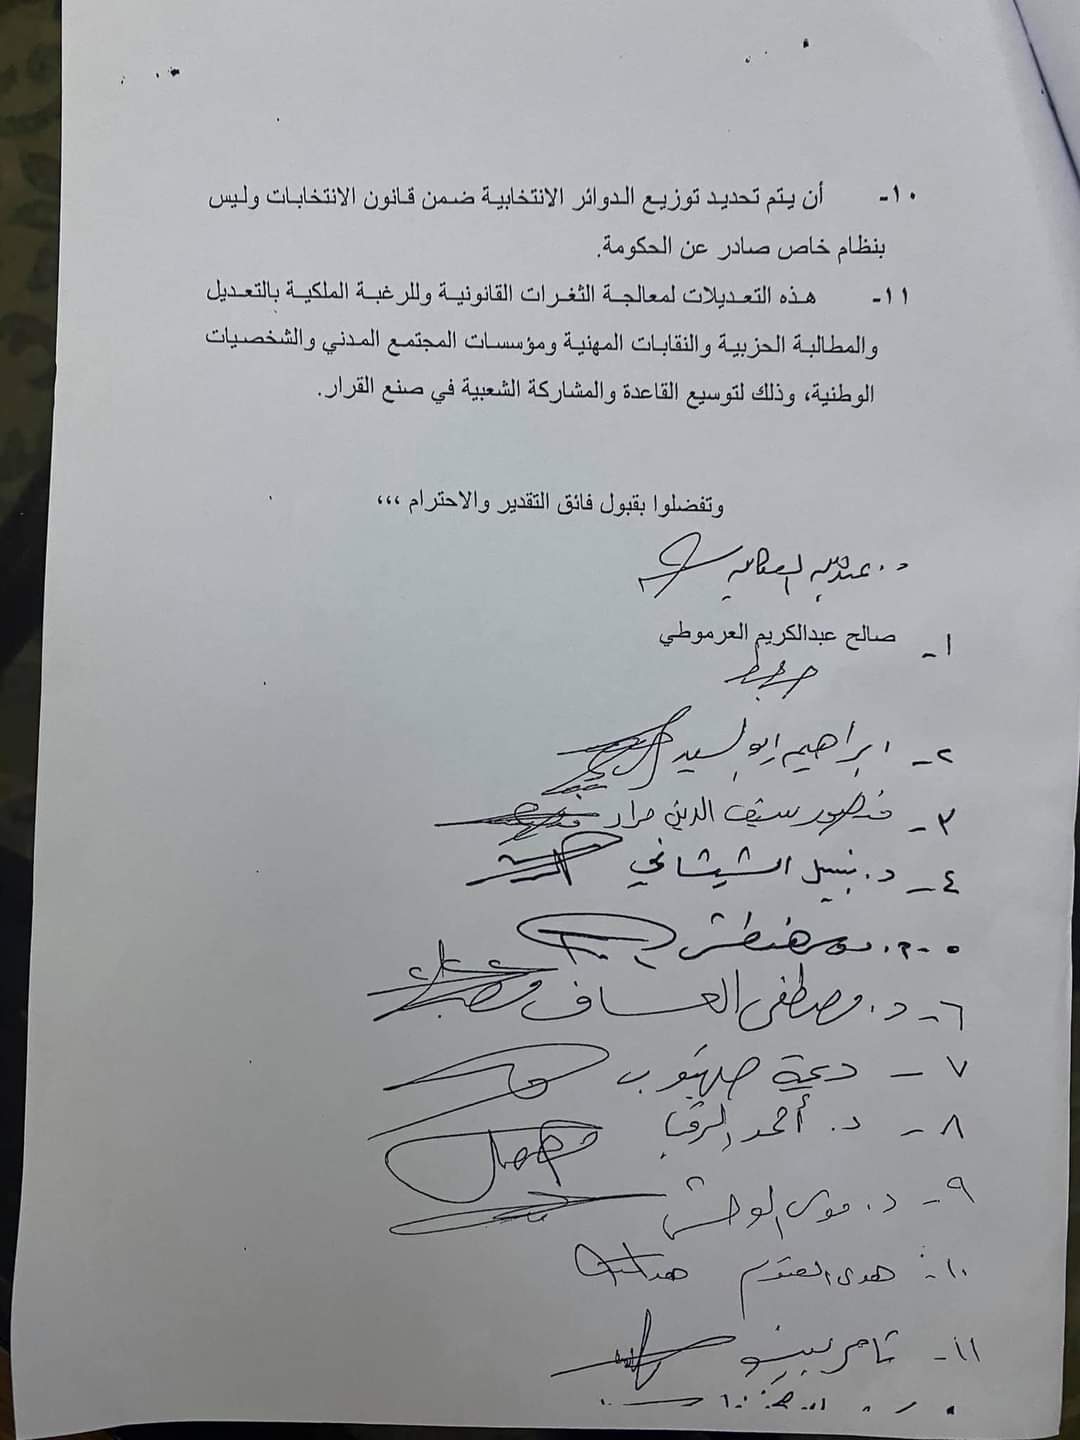 ١٠- أن يتم تحديد توزيع الدوائر الانتخابية ضمن قانون الانتخابات وليس
بنظام خاص صادر عن الحكومة.
١١- هذه التعديلات لمعالجة الثغرات القانونية وللرغبة الملكية بالتعديل
والمطالبة الحزبية والنقابات المهنية ومؤسسات المجتمع المدني والشخصيات
الوطنية، وذلك لتوسيع القاعدة والمشاركة الشعبية في صنع القرار.
وتفضلوا بقبول فائق التقدير والاحترام ،،،
د. عبدالله العكايلة
١- صالح عبدالكريم العرموطي
٢- ابراهيم ابو السيد
٣- منصور سيف الدين مراد
٤- د. نبيل الشيشاني
٥- م. موسى هنطش
٦- د. مصطفى العساف
٧- ديمة طهبوب
٨- د. أحمد الرقب
٩- د. موسى الوحش
١٠- هدى العتوم
١١- تامر بينو